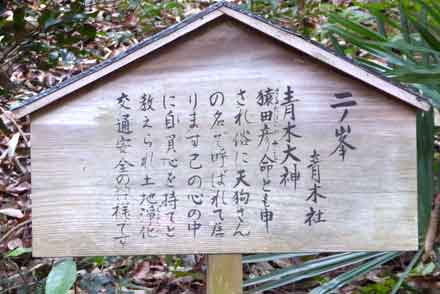 二ノ峯
青木社
青木大神
猿田彦命とも申
され俗に天狗さん
の名で呼ばれて居
ります己の心の中
に自負心を持てと
教えられ土地浄化
交通安全の神様です